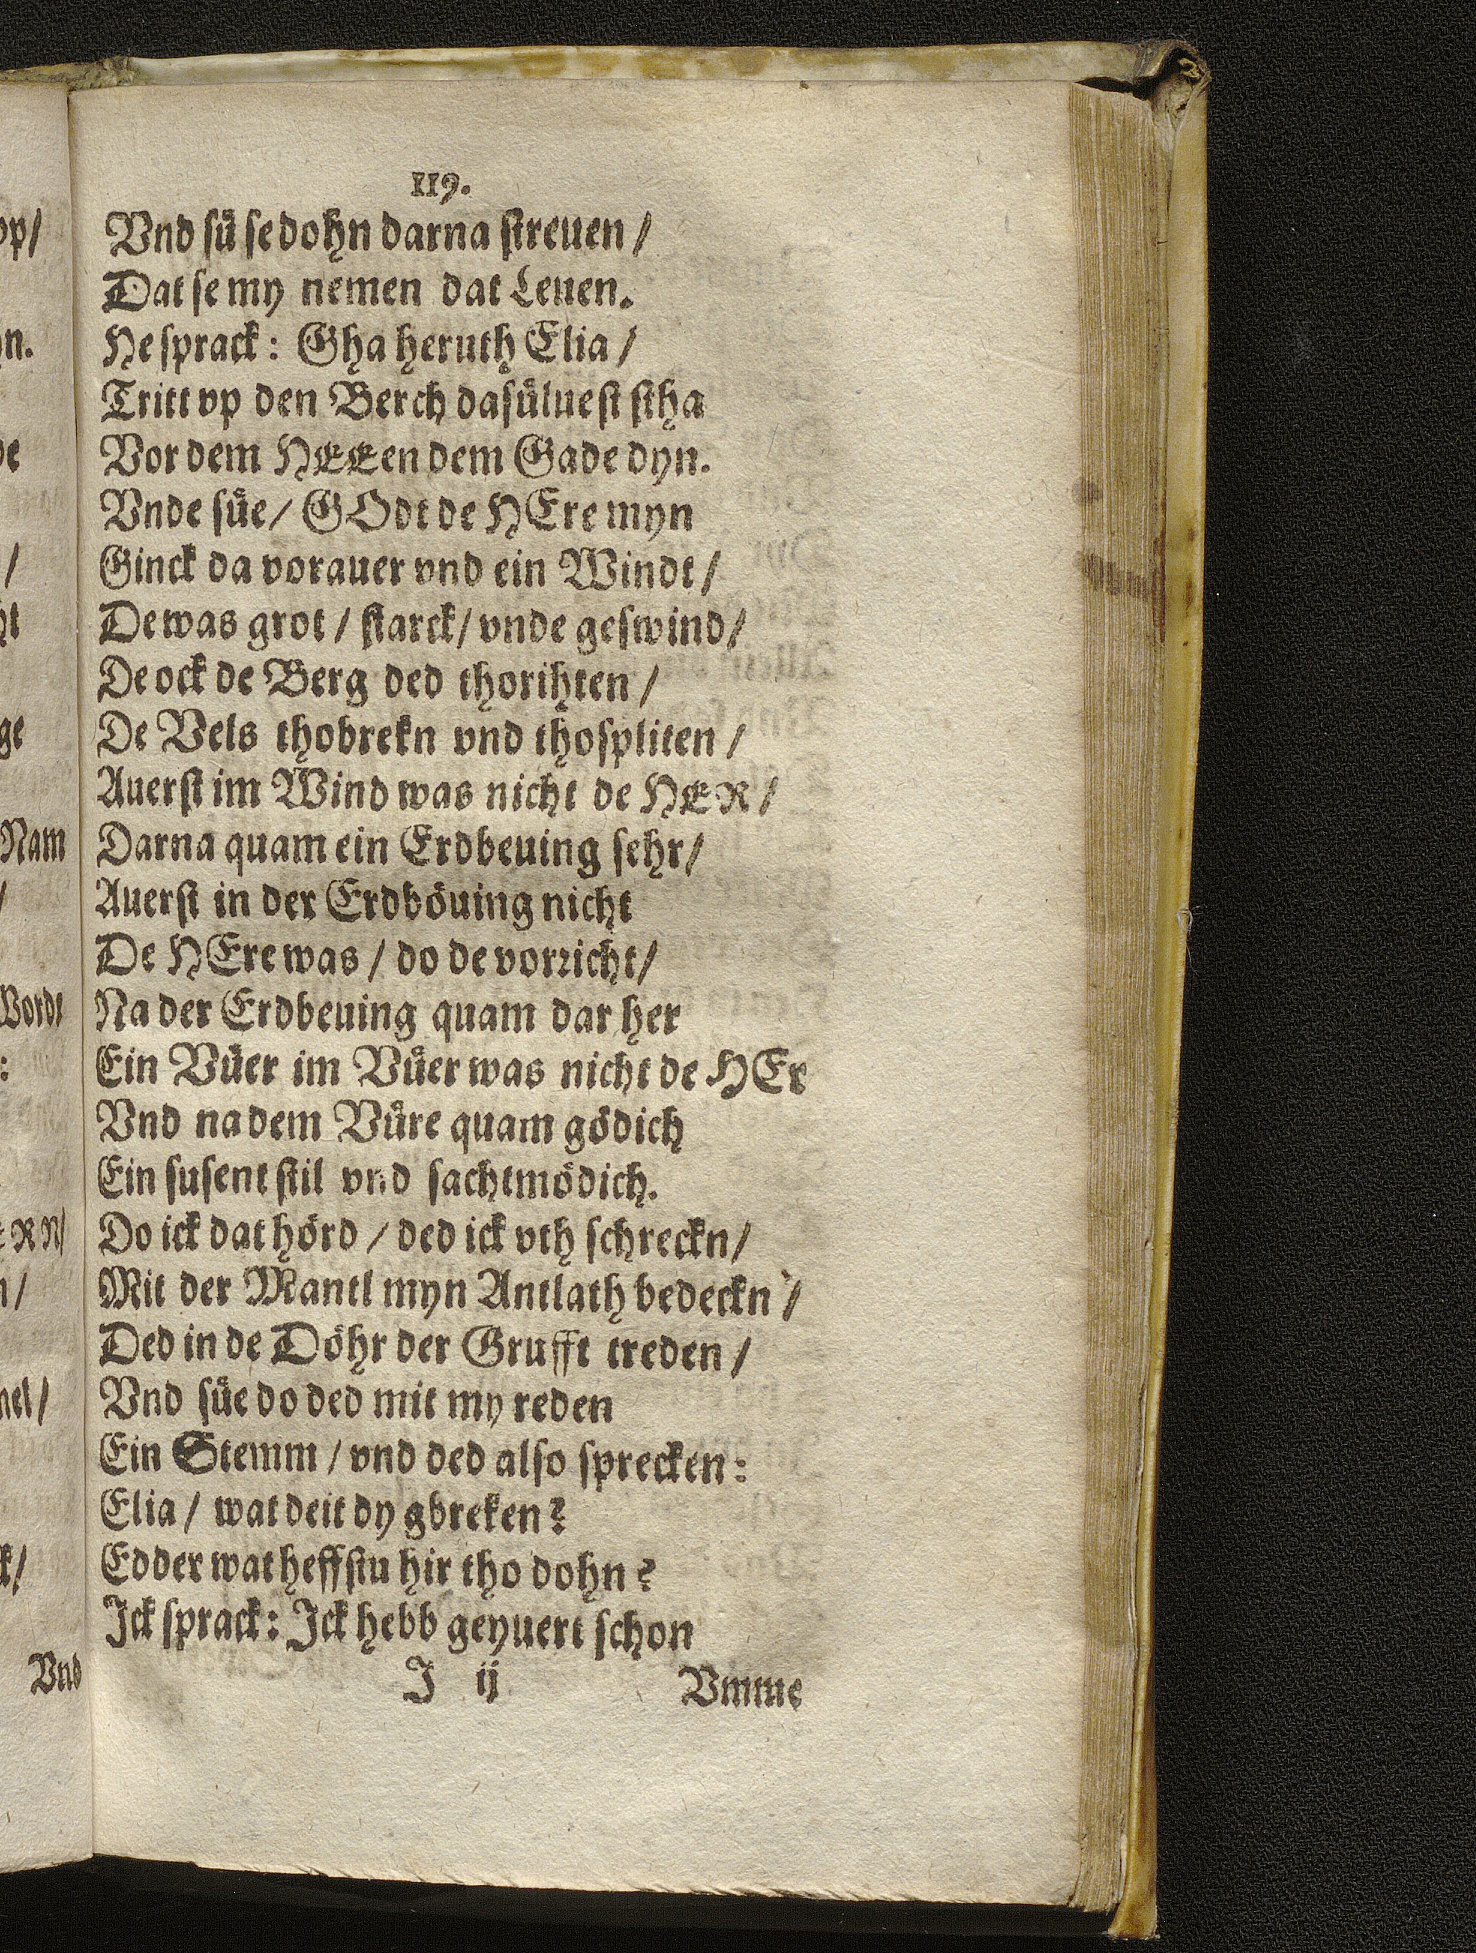 119.
Vnd süͤ se dohn darna streuen /
Dat se my nemen dat Leuen.
He sprack: Gha heruth Elia /
Tritt vp den Berch dasüluest stha
Vor dem HEEen dem Gade dyn.
Vnde süͤe / GOdt de HEre myn
Ginck da vorauer vnd ein Windt /
De was grot / starck / vnde geswind /
De ock de Berg ded thorihten /
De Vels thobrekn vnd thospliten /
Auerst im Wind was nicht de HER /
Darna quam ein Erdbeuing sehr /
Auerst in der Erdböuing nicht
De HEre was / do de vorricht /
Na der Erdbeuing quam dar her
Ein Vüer im Vüer was nicht de HEr
Vnd na dem Vüre quam gödich
Ein susent stil vnd sachtmödich.
Do ick dat hörd / ded ick vth schreckn /
Mit der Mantl myn Antlath bedeckn /
Ded in de Döhr der Grufft treden /
Vnd süe do ded mit my reden
Ein Stemm / vnd ded also sprecken:
Elia / wat deit dy gbreken?
Edder wat heffstu hir tho dohn?
Ick sprack: Ick hebb geyuert schon
I ij Vmme
vp/
n.
de
/
ht
ge
Nam
/
Wordt
:
ERN/
n/
mel/
k/
Vnd